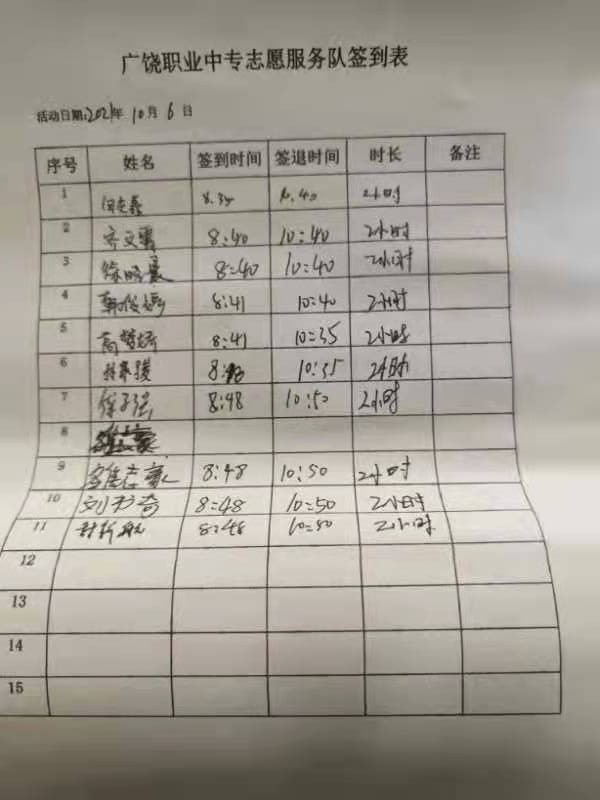 广饶职业中专志愿服务队签到表
活动日期:2021年 10月 6日
序号 姓名 签到时间 签退时间 时长 备注
1 2小时
2 齐文 8:40 10:40 2小时
3 徐晓晨 8:40 10:40 2小时
4 韩俊 8:41 10:40 2小时
5 高梦 8:41 10:35 2小时
6 10:35 2小时
7 徐子强 8:48 10:50 2小时
8
9 8:48 10:50 2小时
10 刘书奇 8:48 10:50 2小时
11 8:48 10:50 2小时
12
13
14
15